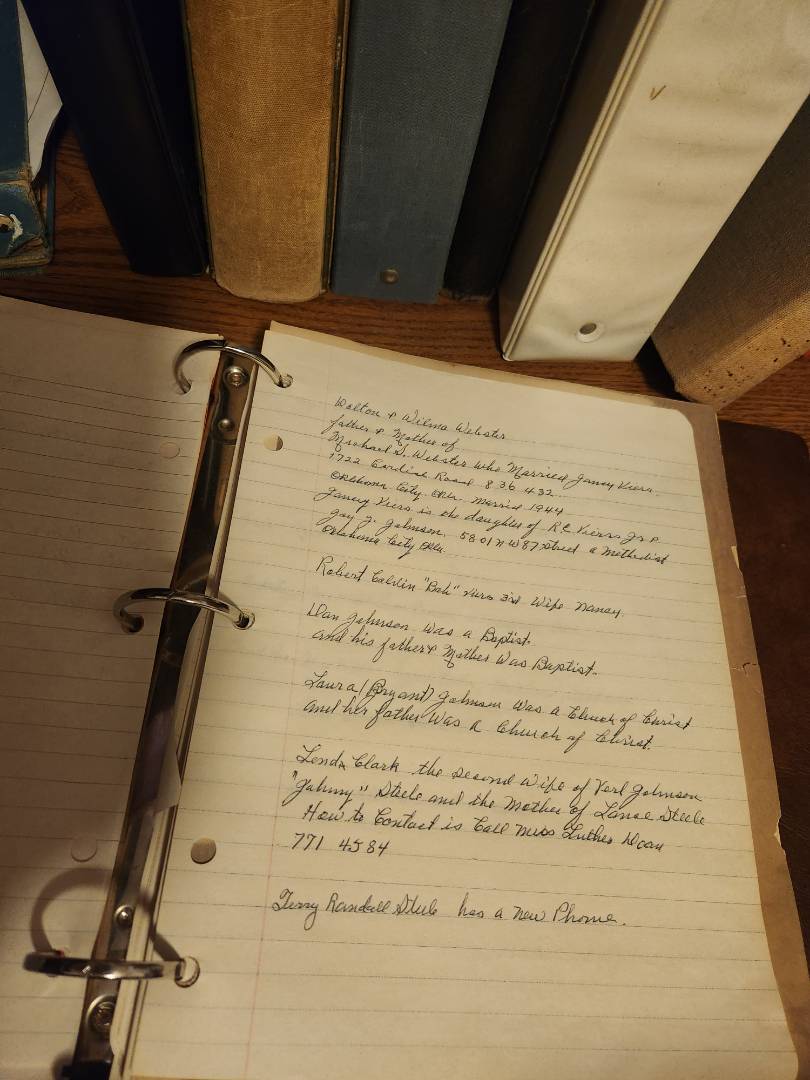 Walton & Wilma Webster
father & Mother of
Michael S. Webster who Married Janey Viers.
1722 Road 836 432
Oklahoma City. Okla. Married 1944
Janey Viers is the daughter of R.C. Vierss Jr &
Joy J. Johnson. 5801 N W 87 Street a Methodist
Oklahoma City Okla.
Robert Calvin "Bob" Viers 3rd Wife Nancy.
Dan Johnson was a Baptist.
and his father & Mother Was Baptist.
Laura (Bryant) Johnson Was a Church of Christ
and her father Was a Church of Christ.
Linda Clark the second wife of Verl Johnson
"Johnny" Steele and the Mother of Lanae Steele
How to Contact is Call Miss Luther Doan
771 4584
Terry Randall Steele has a new Phone.